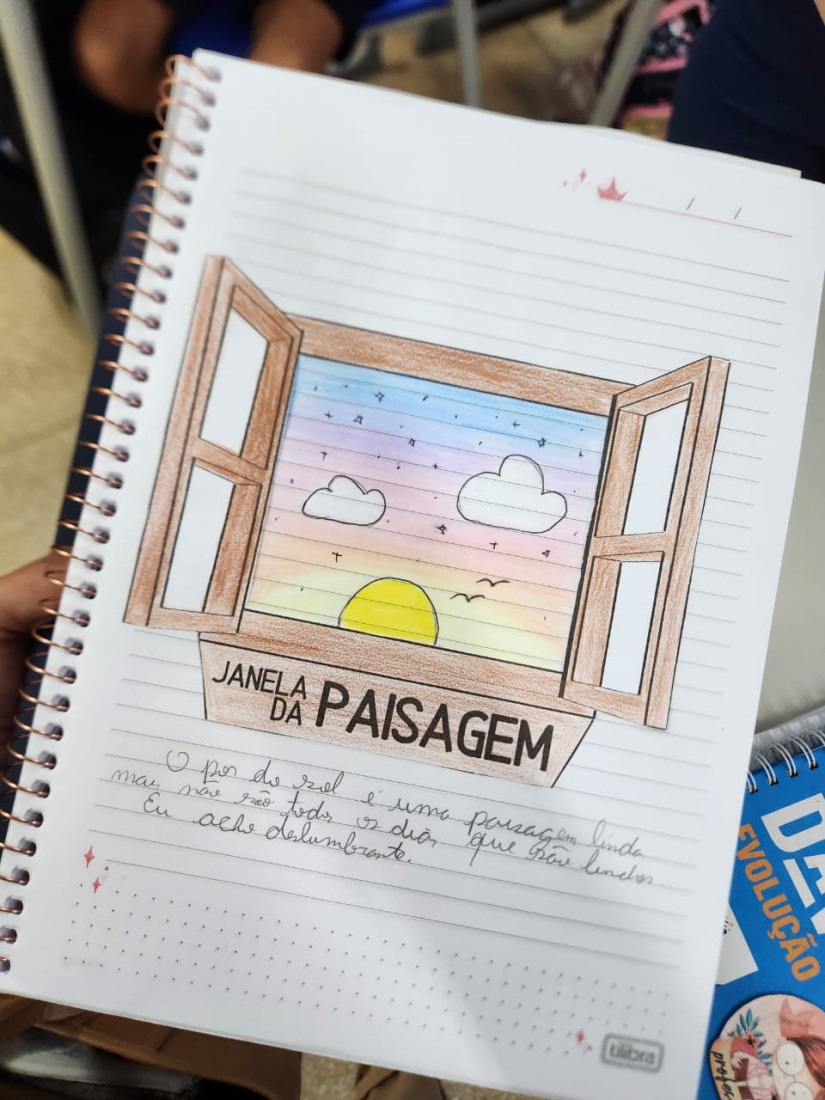 JANELA
DA PAISAGEM
O por do sol é uma paisagem linda
mais não são todos os dias que são lindos.
Eu acho deslumbrante.
tilibra
DA
EVOLUÇÃO
profes